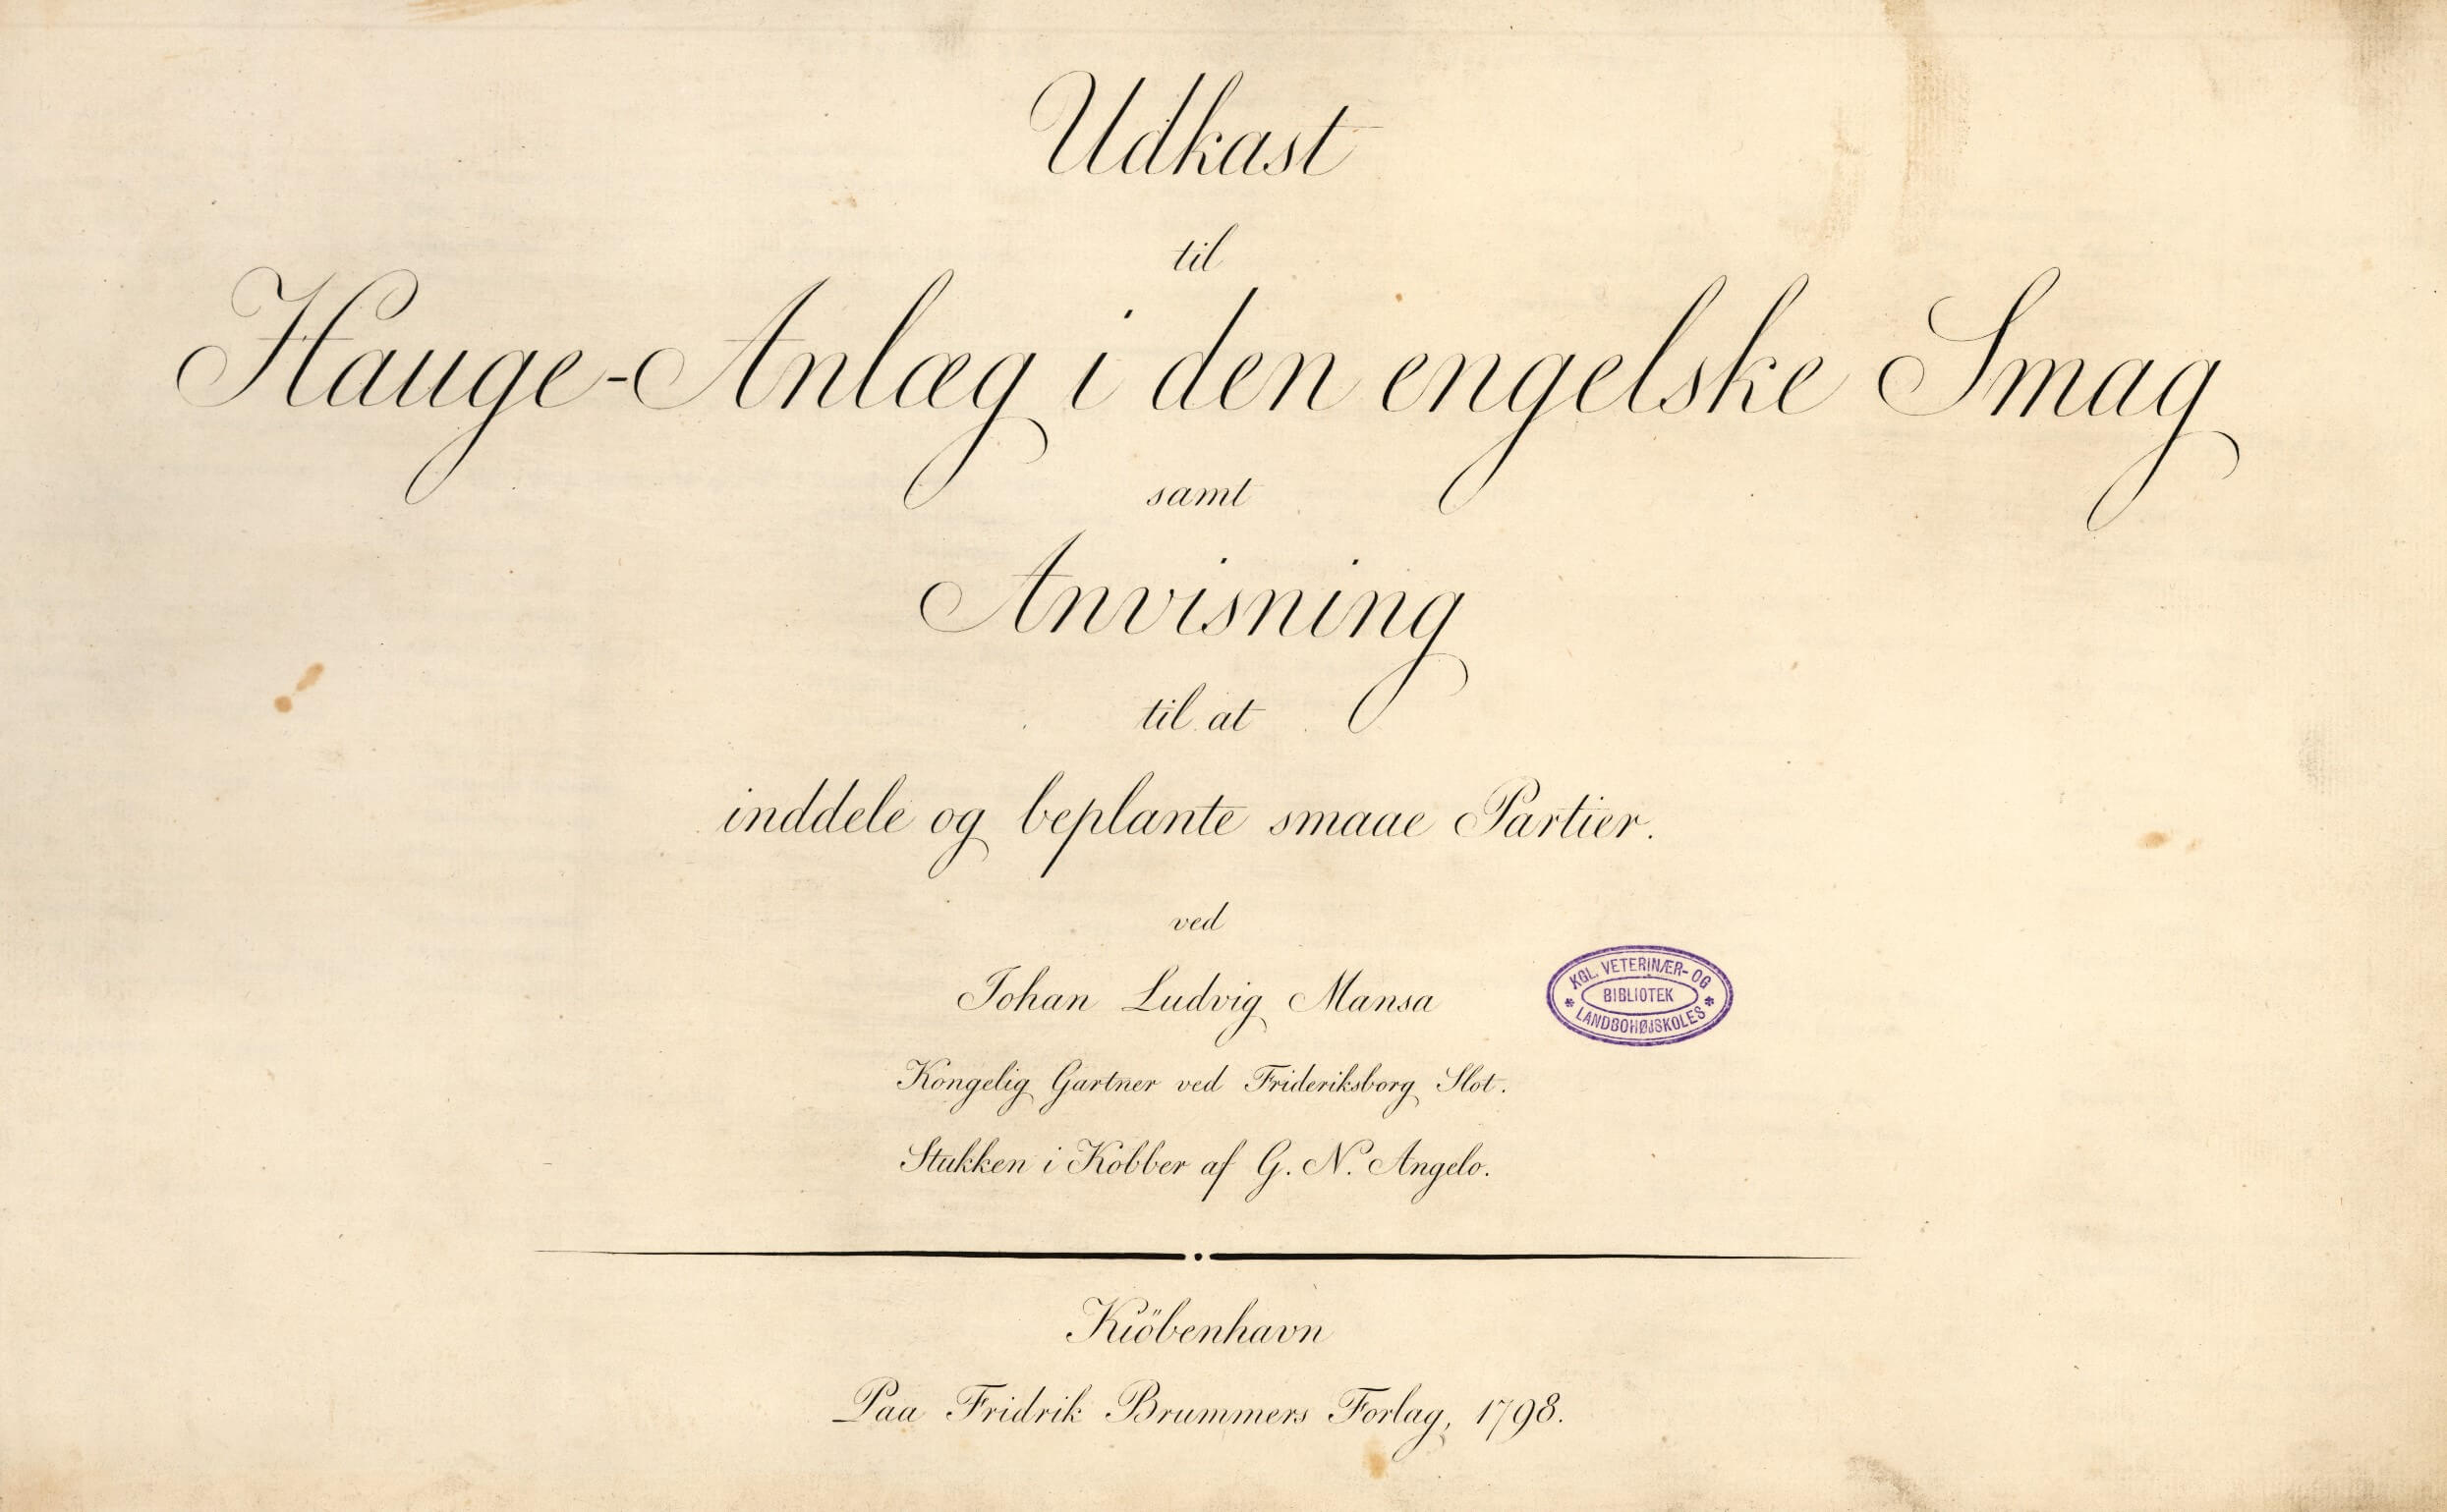 Udkast
til
Hauge-Anlæg i den engelske Smag
samt
Anvisning
til at
inddele og beplante smaae Partier.
ved
Johan Ludvig Mansa
KGL. VETERINÆR- OG
BIBLIOTEK
* LANDBOHØJSKOLES *
Kongelig Gartner ved Frideriksborg Slot.
Stukken i Kobber af G. N. Angelo.
Kiöbenhavn
Paa Fridrik Brummers Forlag, 1798.